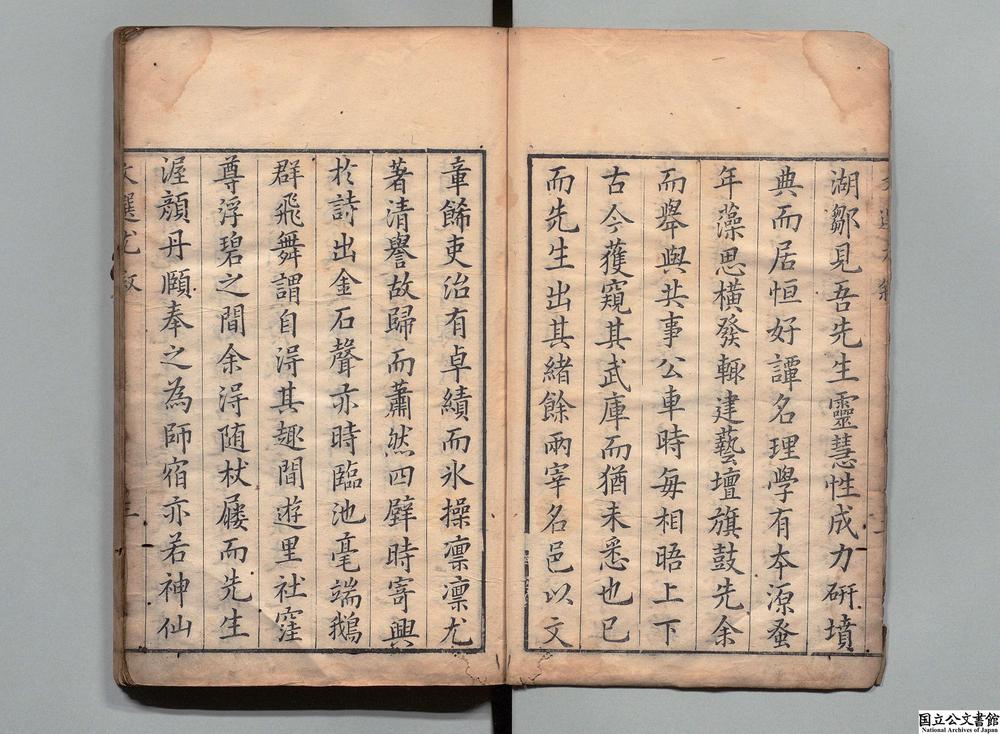 湖鄒見吾先生靈慧性成力硏墳
典而居恒好譚名理學有本源蚤
年藻思橫發輙建藝壇旗鼓先余
而舉與共事公車時每相晤上下
古今獲窺其武庫而猶未悉也已
而先生出其緒餘兩宰名邑以文
章餙吏治有卓績而氷操凛凛尤
著清譽故歸而蕭然四壁時寄興
於詩出金石聲亦時臨池毫端鵝
群飛舞謂自淂其趣間遊里社窪
尊浮碧之間余淂随杖屨而先生
渥顏丹頤奉之為師宿亦若神仙
文選尤叙
三
国立公文書館
National Archives of Japan